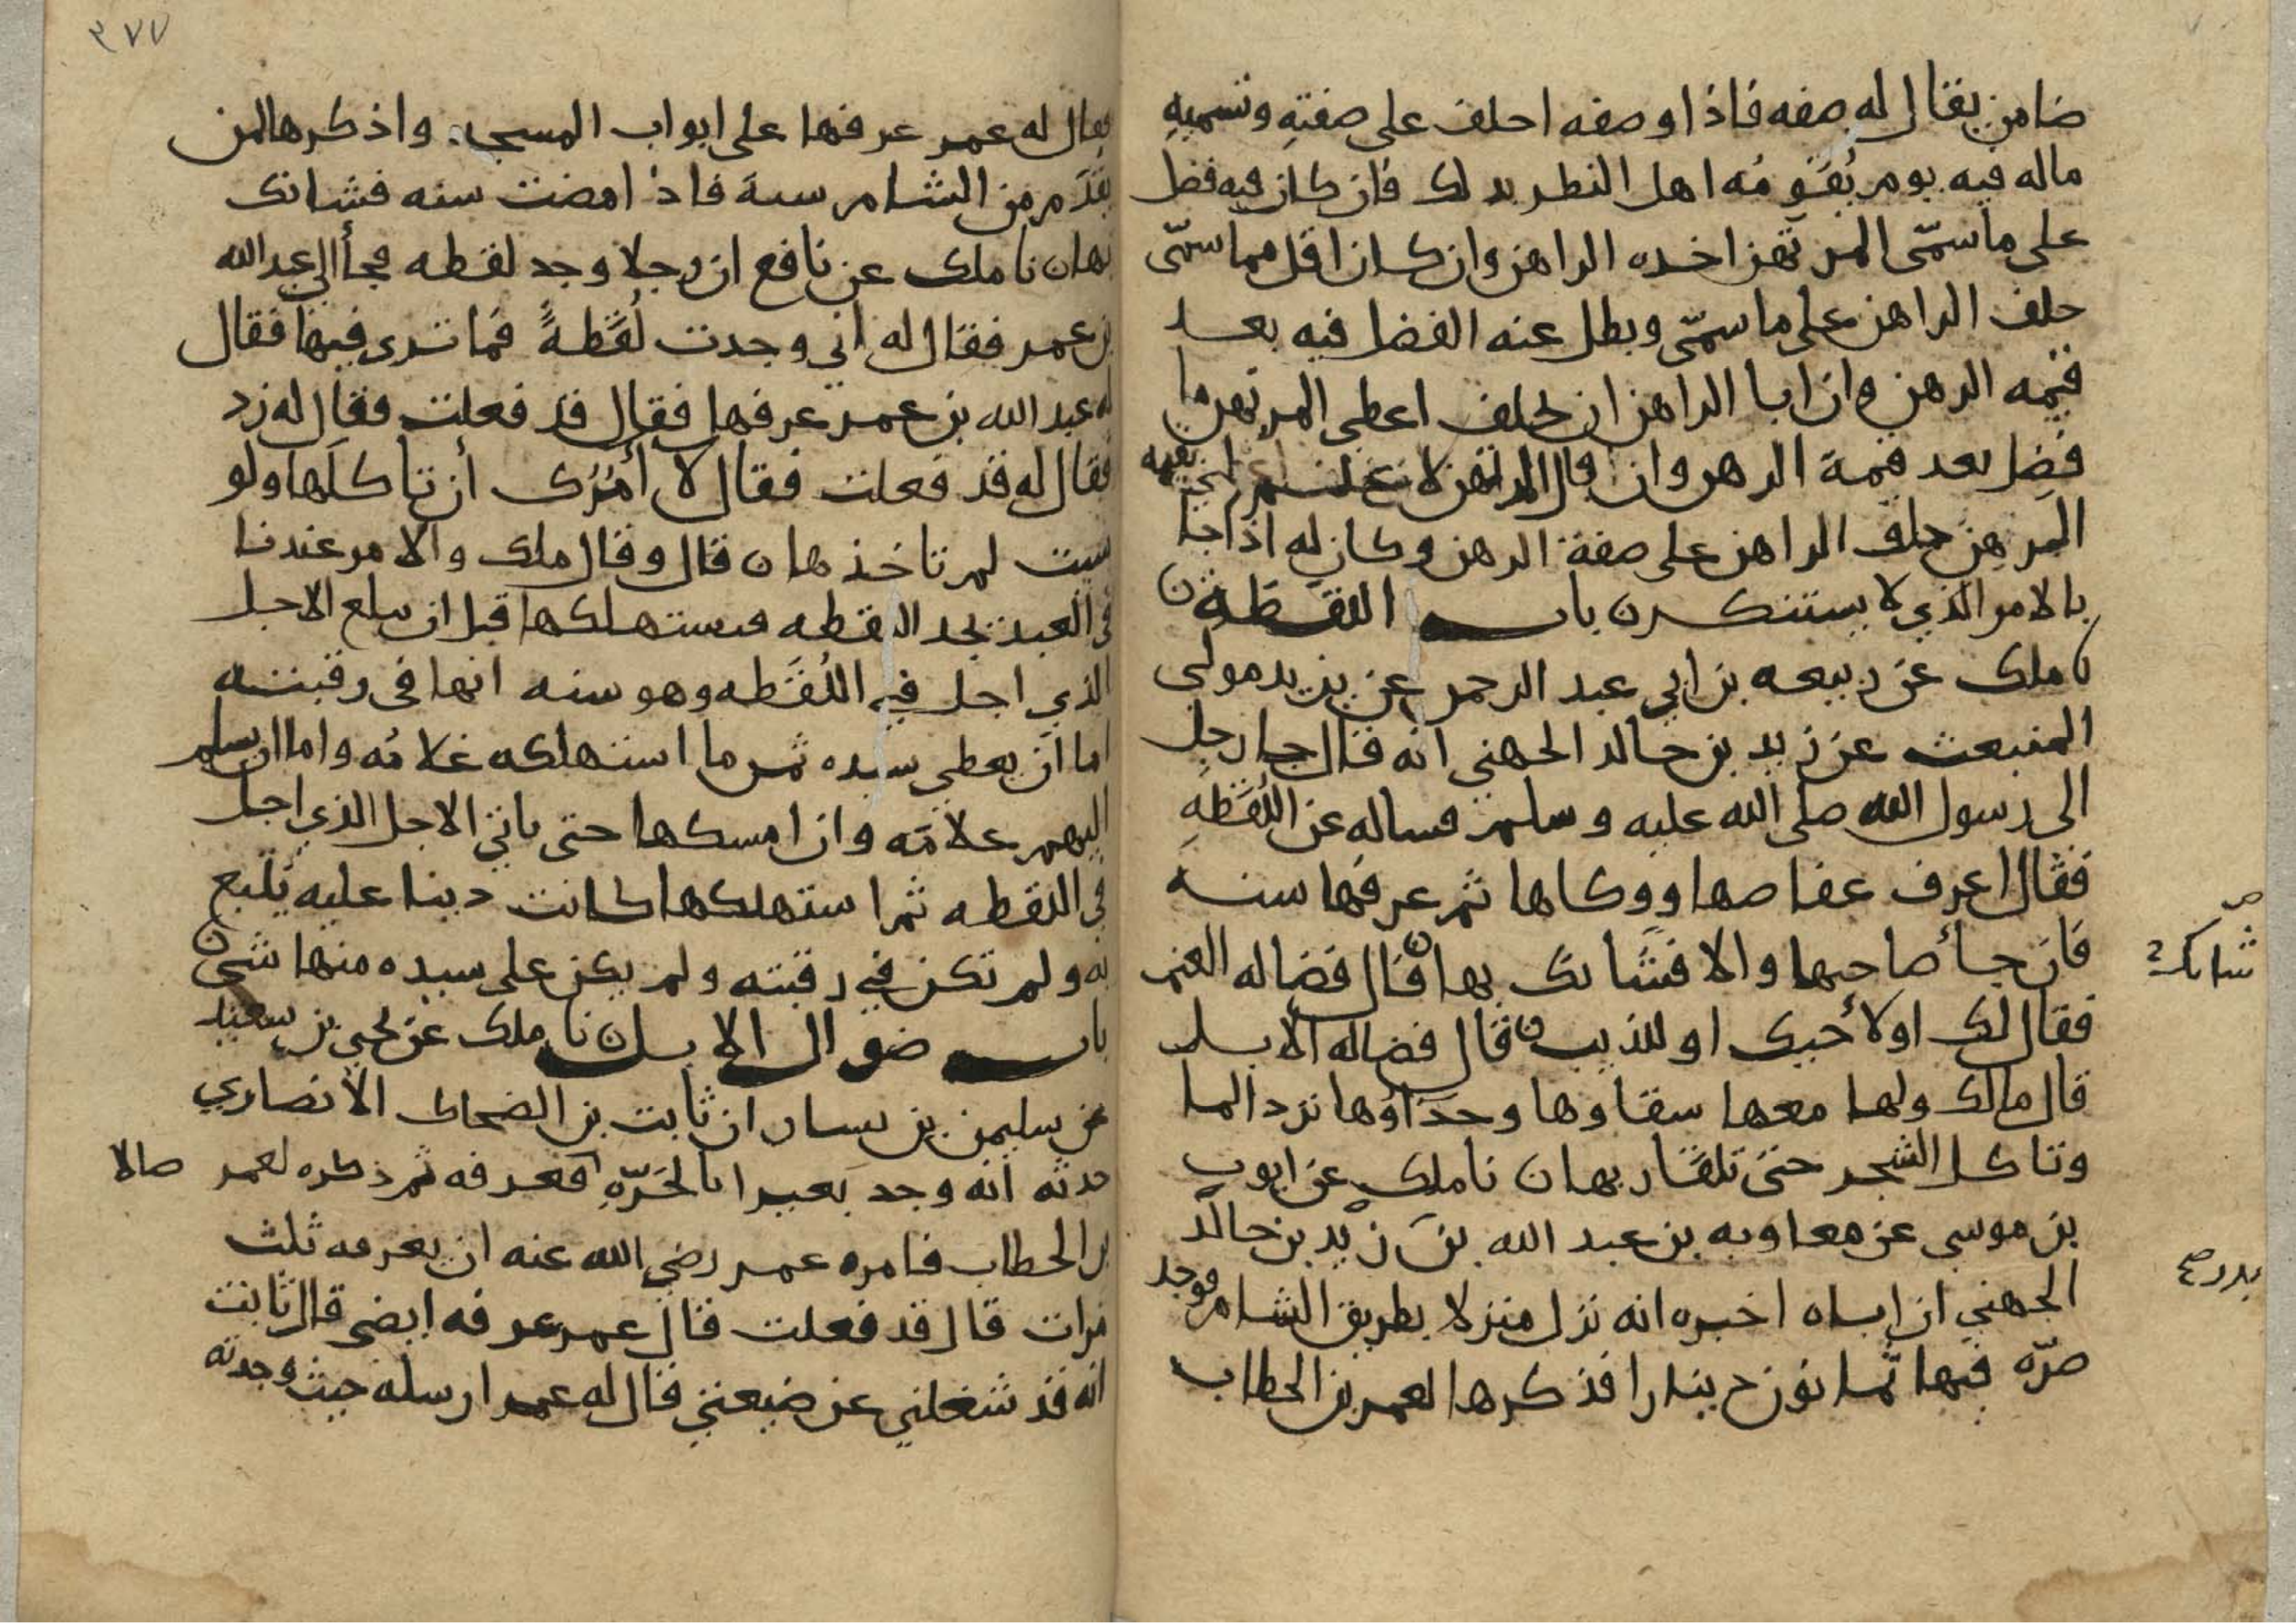 ضامن يقال له صفه فاذا وصفه احلف على صفتهِ وتسميهِ
ماله فيه يوم يُقَوِّمُه اهل النظر بدلك فان كان فيه فضل
على ما سمّى المرتهن اخده الراهن وان كان اقل مما سمّى
حلف الراهن على ما سمّى وبطل عنه الفضل فيه بعد
قيمه الرهن وان ابا الراهن ان يحلف اعطى المرتهن ما
فضل بعد قيمة الرهن وان قال المرتهن لا علم لي بقيمه
المرهن حلف الراهن على صفة الرهن وكان له اذا جا
بالامر الذي لا يستنكر ن باب اللقطة ن
نا ملك عن ربيعه بن ابي عبد الرحمن عن يزيد مولى
المنبعث عن زيد بن خالد الجهني انه قال جا رجل
الى رسول الله صلى الله عليه وسلم فساله عن اللُقَطَهِ
فقال اعرف عفاصها ووكاها ثم عرفها سنه
فان جأ صاحبها والا فشانك بها ن قال فضاله الغنم
فقال لك او لأخيك او للذيب ن قال فضاله الابل
قال مالك ولها معها سقاوها وحذاوها ترد الما
وتاكل الشجر حتى تلقا ربها ن نا ملك عن ايوب
بن موسى عن معاويه بن عبد الله بن زيد بن خالد
الجهني ان اباه اخبره انه نزل منزلا بطريق الشام فوجد
صرّه فيها ثمانون دينارا فذكرها لعمر بن الخطاب
شانك
بدر
٣٧٧
فقال له عمر عرفها على ابواب المسجد واذكرها لمن
يقدَم من الشام سنة فاذا مضت سنه فشانك
بها ن نا ملك عن نافع ان رجلا وجد لقطه فجأ الى عبد الله
بن عمر فقال له اني وجدت لُقَطةً فما ترى فيها فقال
له عبد الله بن عمر عرفها فقال قد فعلت فقال له زد
فقال له قد فعلت فقال لا أمُرُك أن تاكلها ولو
شيت لم تاخذها ن قال وقال ملك والامر عندنا
في العبد يجد اللقطه فيستهلكها قبل ان يبلغ الاجل
الذي اجل فيه اللُقَطه وهو سنه انها في رقبته
اما ان يعطي سيده ثمن ما استهلكه غلامُه واما ان يسلم
اليهم غلامَه وان امسكها حتى ياتي الاجل الذي اجل
في اللقطه ثم استهلكها كانت دينا عليه يتبع
به ولم تكن في رقبته ولم يكن على سيده منها شي ن
باب ضوال الابل ن نا ملك عن يحيى بن سعيد
عن سليمن بن يسار ان ثابت بن الضحاك الانصاري
حدثه انه وجد بعيرا بالحَرّهِ فعرفه ثم ذكره لعمر
بن الخطاب فامره عمر رضي الله عنه ان يعرفه ثلث
مرات قال قد فعلت قال عمر عرفه ايضى قال ثابت
انه قد شغلني عن ضيعتي فقال له عمر ارسله حيث وجدته
ضالا